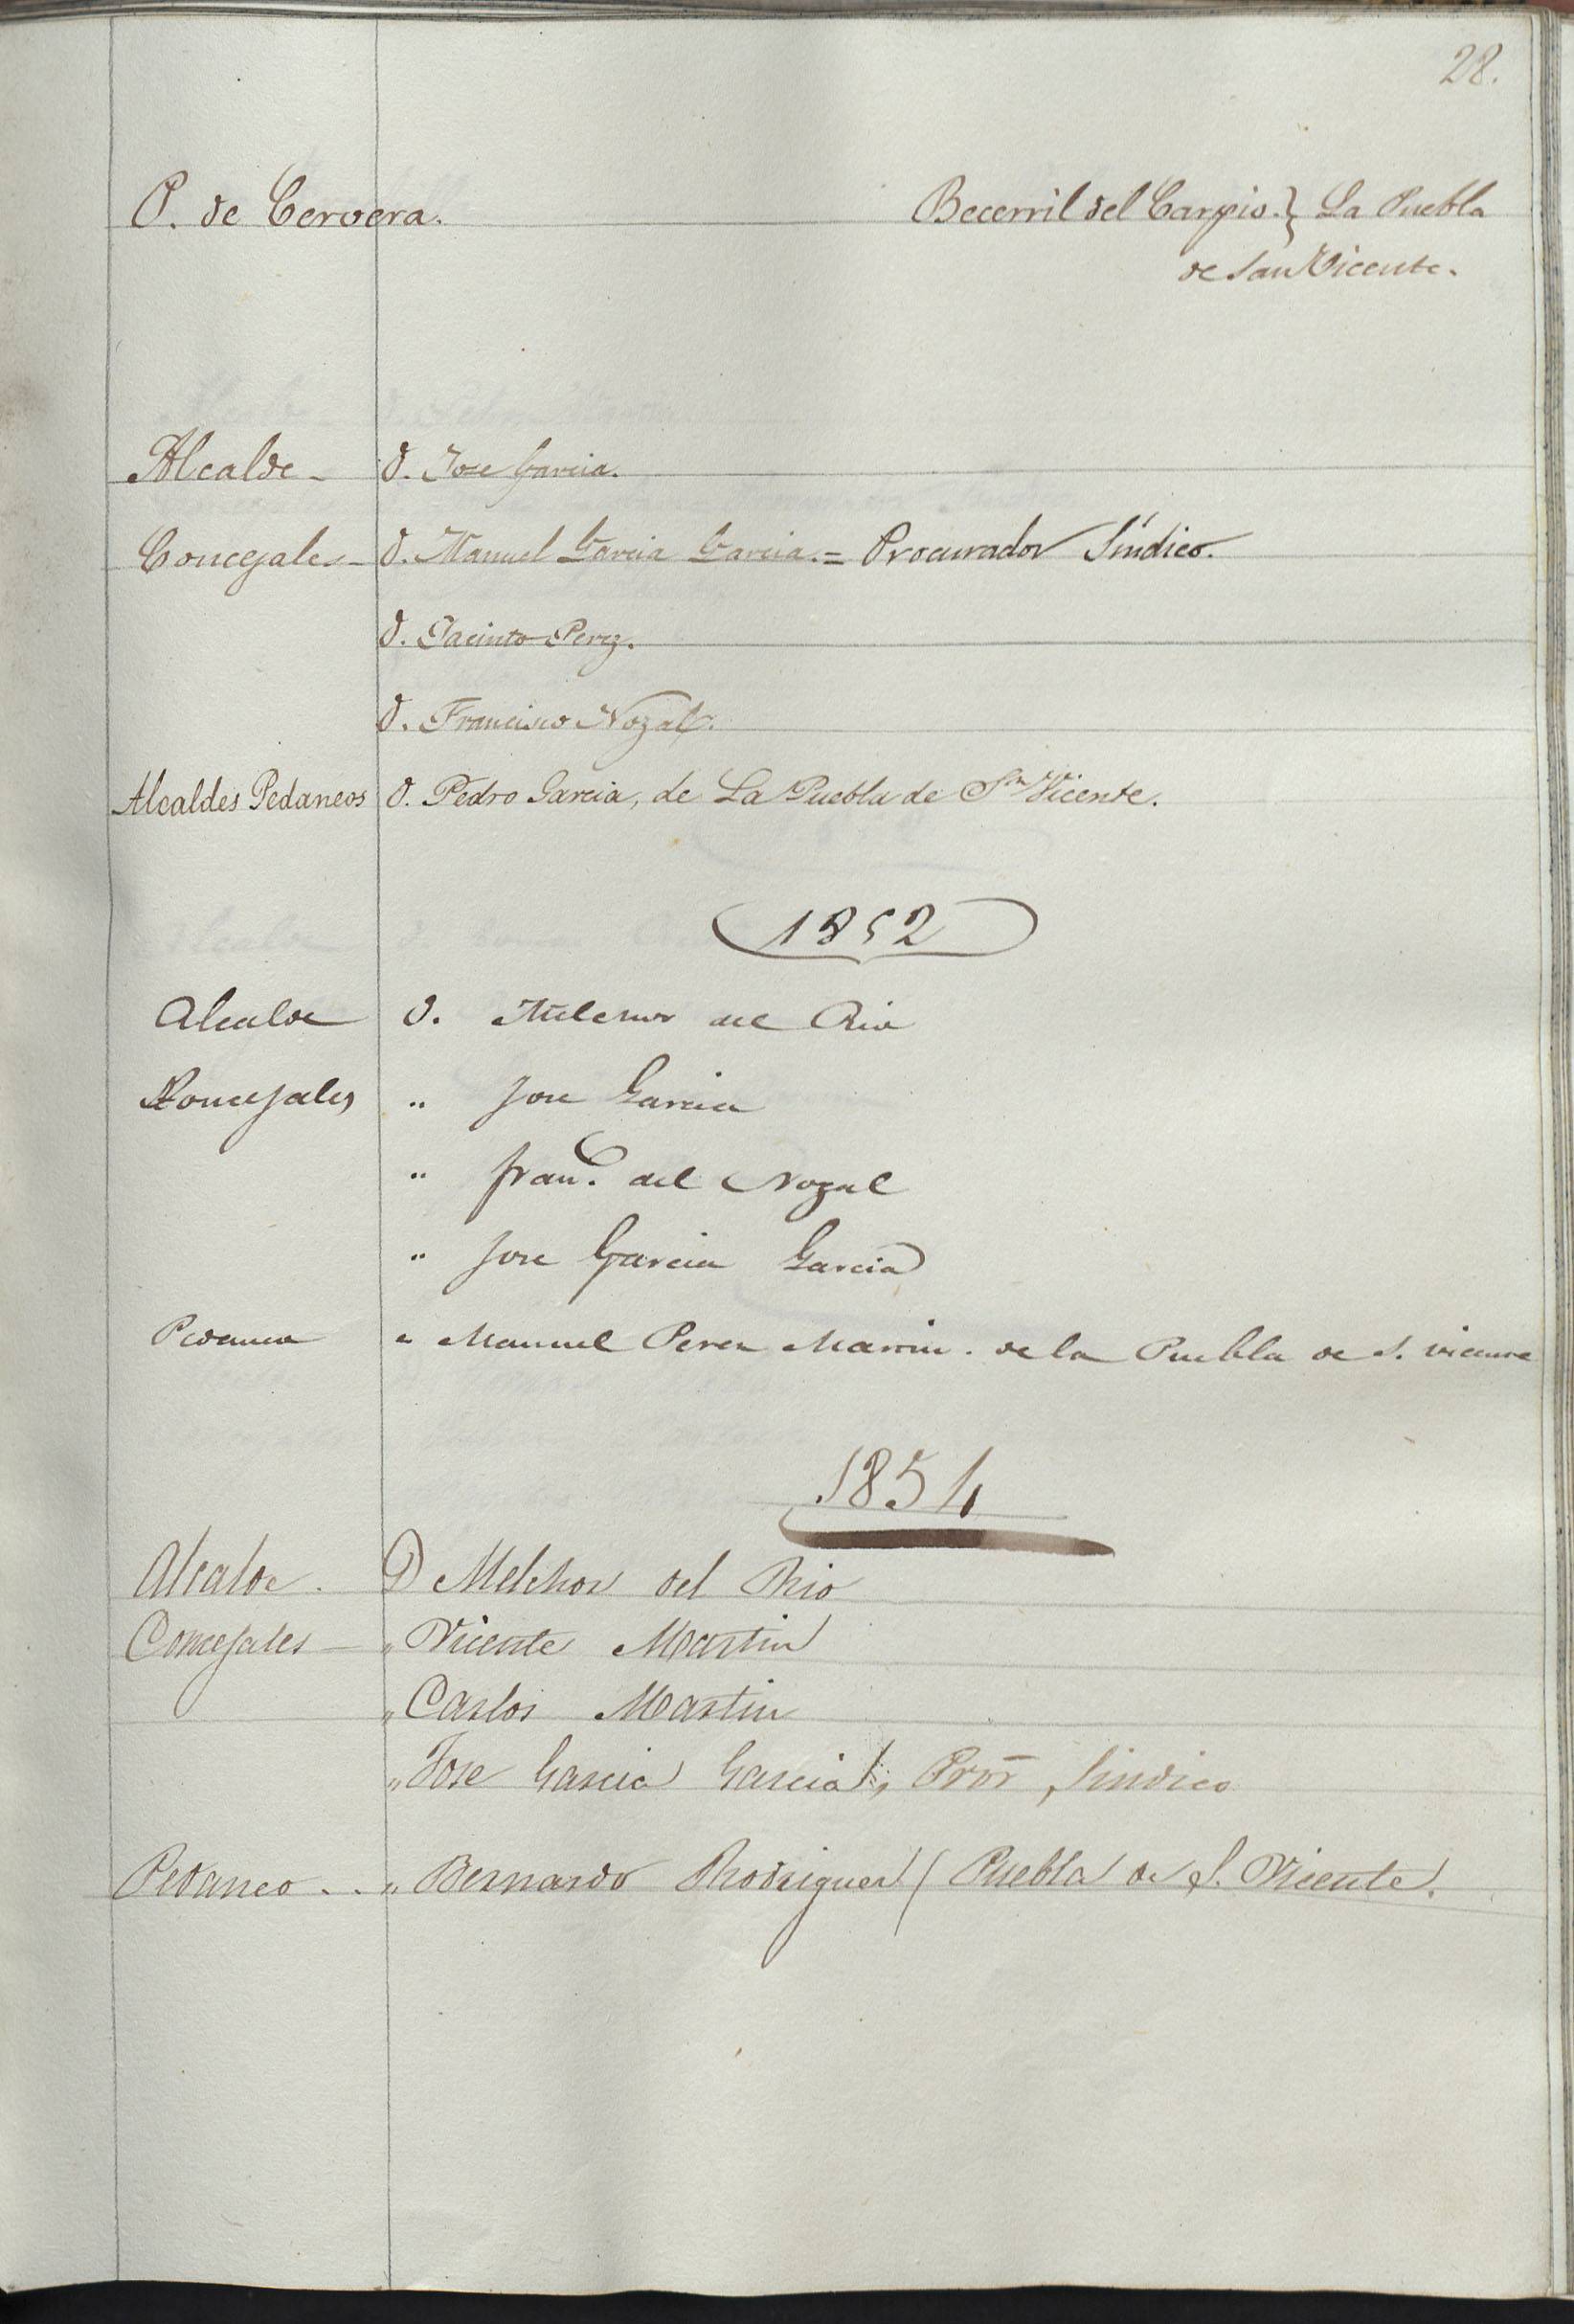 28.
P. de Cervera. Becerril del Carpio. } La Puebla
de San Vicente.
Alcalde - D. Jose Garcia.
Concejales - D. Manuel Garcia Garcia. = Procurador Síndico.
D. Jacinto Perez.
D. Francisco Nozal.
Alcaldes Pedaneos D. Pedro Garcia, de La Puebla de Sn Vicente.
1852
Alcalde D. Melchor del Rio
Concejales " Jose Garcia
" Franco. del Nozal
" Jose Garcia Garcia
Pedaneo " Manuel Perez Martin. de la Puebla de S. Vicente
1854
Alcalde. D Melchor del Rio
Concejales — " Vicente Martin
" Carlos Martin
" Jose Garcia Garcia, Pror Sindico
Pedaneo . . " Bernardo Rodriguez ( Puebla de S. Vicente.